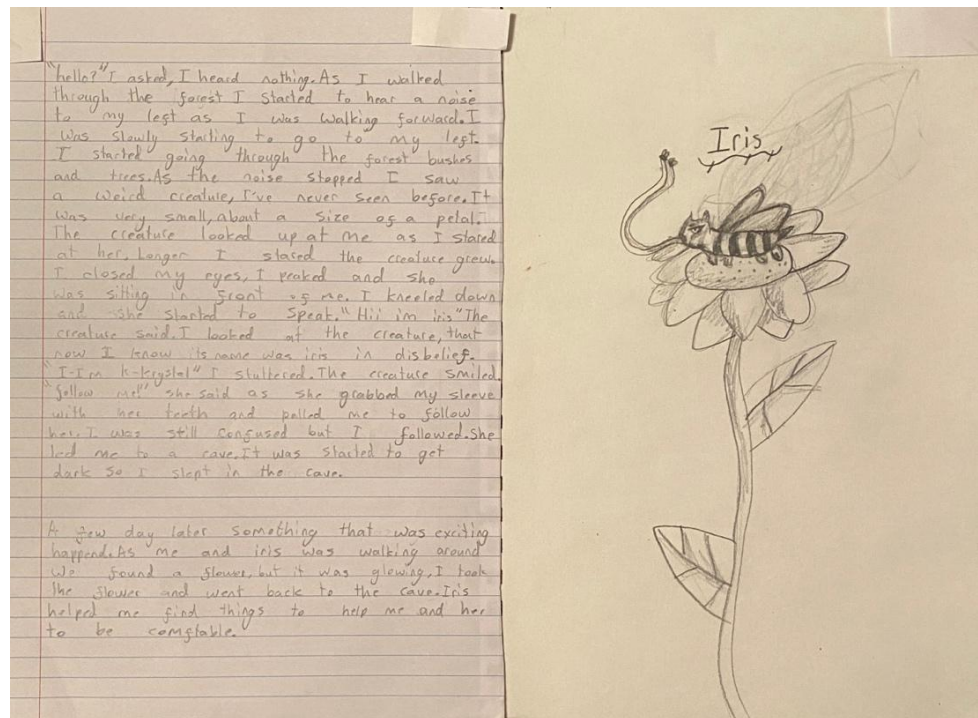 "hello?" I asked, I heard nothing. As I walked
through the forest I started to hear a noise
to my left as I was walking forward. I
was slowly starting to go to my left.
I started going through the forest bushes
and trees. As the noise stopped I saw
a weird creature, I've never seen before. It
was very small, about a size of a petal.
The creature looked up at me as I stared
at her, longer I stared the creature grew.
I closed my eyes, I peaked and she
was sitting in front of me. I kneeled down
and she started to speak. "Hii im iris" The
creature said. I looked at the creature, that
now I know its name was iris in disbelief.
"I-I'm k-krystel" I stuttered. The creature smiled.
"follow me!" she said as she grabbed my sleeve
with her teeth and pulled me to follow
her. I was still confused but I followed. She
led me to a cave. It was started to get
dark so I slept in the cave.
A few day later something that was exciting
happend. As me and iris was walking around
we found a flower, but it was glowing, I took
the flower and went back to the cave. Iris
helped me find things to help me and her
to be comftable.
Iris